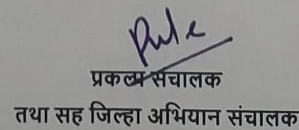 प्रकल्प संचालक
तथा सह जिल्हा अभियान संचालक